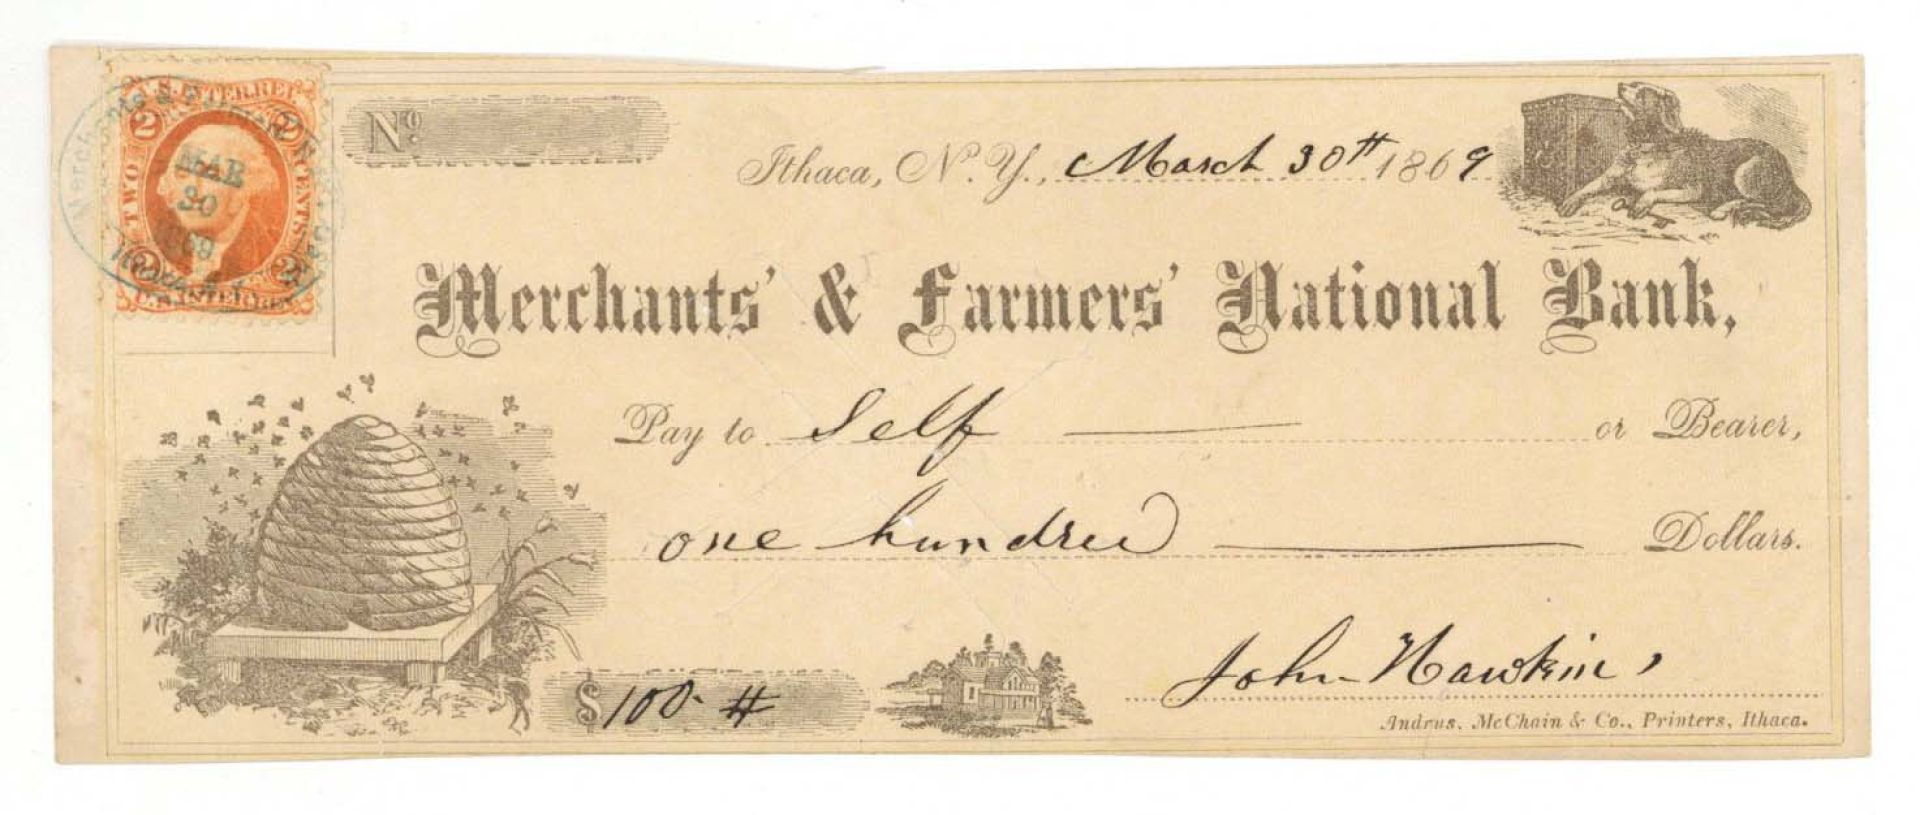 U.S. INTER. REV.
2 2
TWO CENTS
2 2
U.S. INTER. REV.
Merchants &
MAR
30
69
No
Ithaca, N. Y., March 30th 1869
Merchants' & Farmers' National Bank,
Pay to Self or Bearer,
one hundred Dollars.
$ 100.
John Hawkins
Andrus, McChain & Co., Printers, Ithaca.